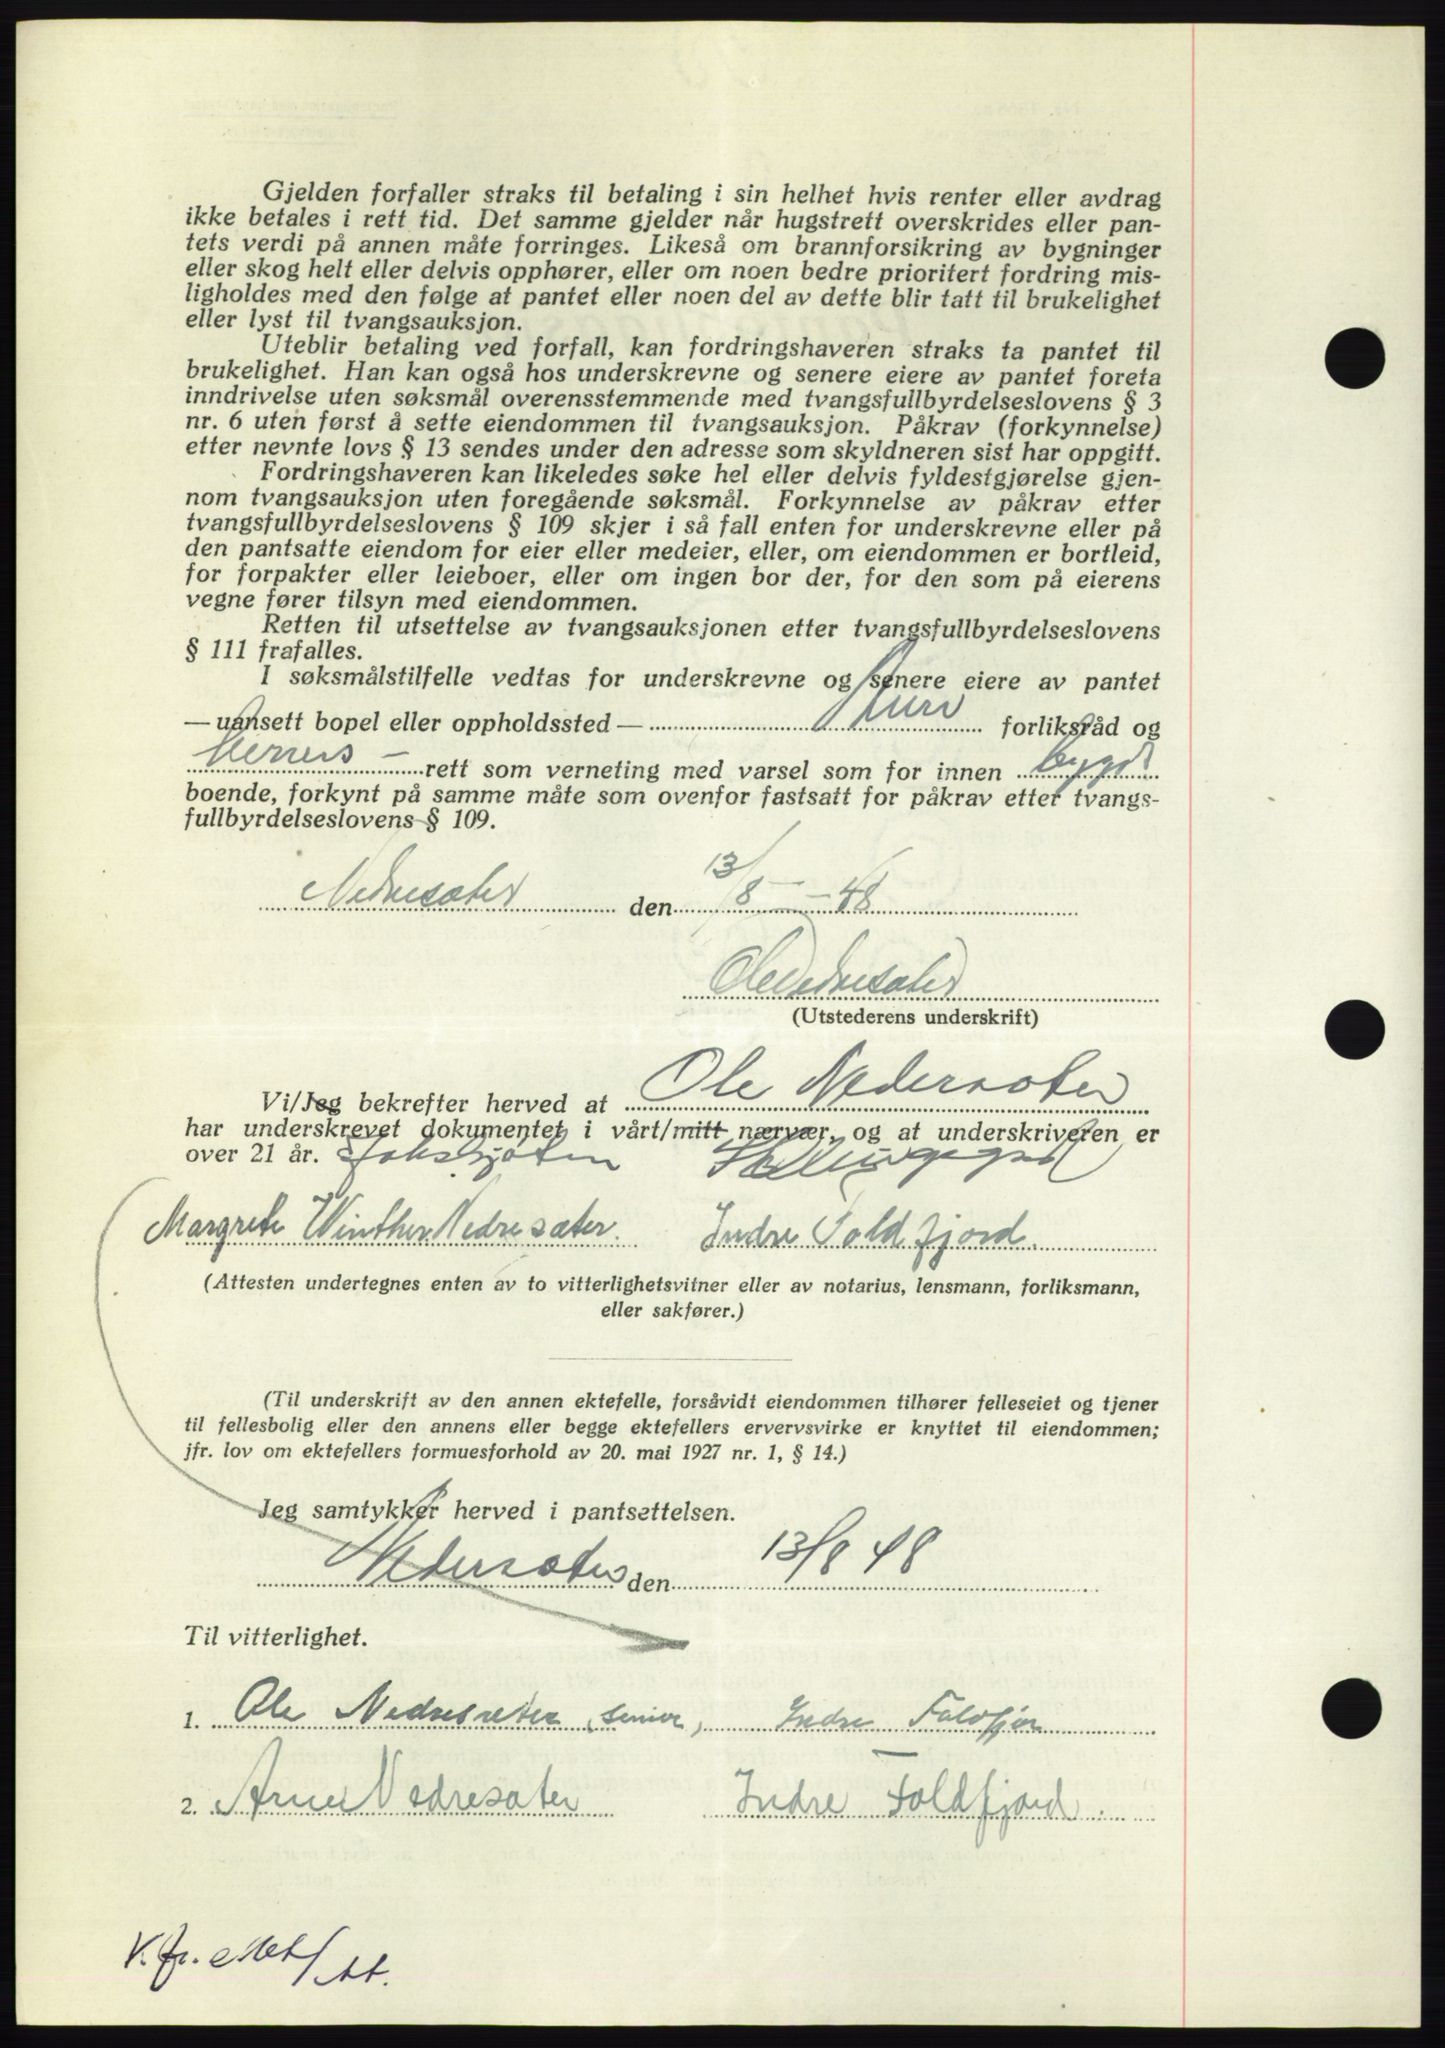 Gjelden forfaller straks til betaling i sin helhet hvis renter eller avdrag
ikke betales i rett tid. Det samme gjelder når hugstrett overskrides eller pan-
tets verdi på annen måte forringes. Likeså om brannforsikring av bygninger
eller skog helt eller delvis opphører, eller om noen bedre prioritert fordring mis-
ligholdes med den følge at pantet eller noen del av dette blir tatt til brukelighet
eller lyst til tvangsauksjon.
Uteblir betaling ved forfall, kan fordringshaveren straks ta pantet til
brukelighet. Han kan også hos underskrevne og senere eiere av pantet foreta
inndrivelse uten søksmål overensstemmende med tvangsfullbyrdelseslovens § 3
nr. 6 uten først å sette eiendommen til tvangsauksjon. Påkrav (forkynnelse)
etter nevnte lovs § 13 sendes under den adresse som skyldneren sist har oppgitt.
Fordringshaveren kan likeledes søke hel eller delvis fyldestgjørelse gjen-
nom tvangsauksjon uten foregående søksmål. Forkynnelse av påkrav etter
tvangsfullbyrdelseslovens § 109 skjer i så fall enten for underskrevne eller på
den pantsatte eiendom for eier eller medeier, eller, om eiendommen er bortleid,
for forpakter eller leieboer, eller om ingen bor der, for den som på eierens
vegne fører tilsyn med eiendommen.
Retten til utsettelse av tvangsauksjonen etter tvangsfullbyrdelseslovens
§ 111 frafalles.
I søksmålstilfelle vedtas for underskrevne og senere eiere av pantet
— uansett bopel eller oppholdssted — forliksråd og
rett som verneting med varsel som for innen bygd
boende, forkynt på samme måte som ovenfor fastsatt for påkrav etter tvangs-
fullbyrdelseslovens § 109.
Nedresæter den 13/8 - 48
Ole Nedresæter
(Utstederens underskrift)
Vi/Jeg bekrefter herved at Ole Nedersæter
har underskrevet dokumentet i vårt/mitt nærvær, og at underskriveren er
over 21 år.
Margrete Winther Nedresæter. Indre Foldfjord.
(Attesten undertegnes enten av to vitterlighetsvitner eller av notarius, lensmann, forliksmann,
eller sakfører.)
(Til underskrift av den annen ektefelle, forsåvidt eiendommen tilhører felleseiet og tjener
til fellesbolig eller den annens eller begge ektefellers ervervsvirke er knyttet til eiendommen;
jfr. lov om ektefellers formuesforhold av 20. mai 1927 nr. 1, § 14.)
Jeg samtykker herved i pantsettelsen.
Nedersæter den 13/8 48
Til vitterlighet.
1. Ole Nedresæter, senior, Indre Foldfjor
2. Arne Nedresæter Indre Foldfjord